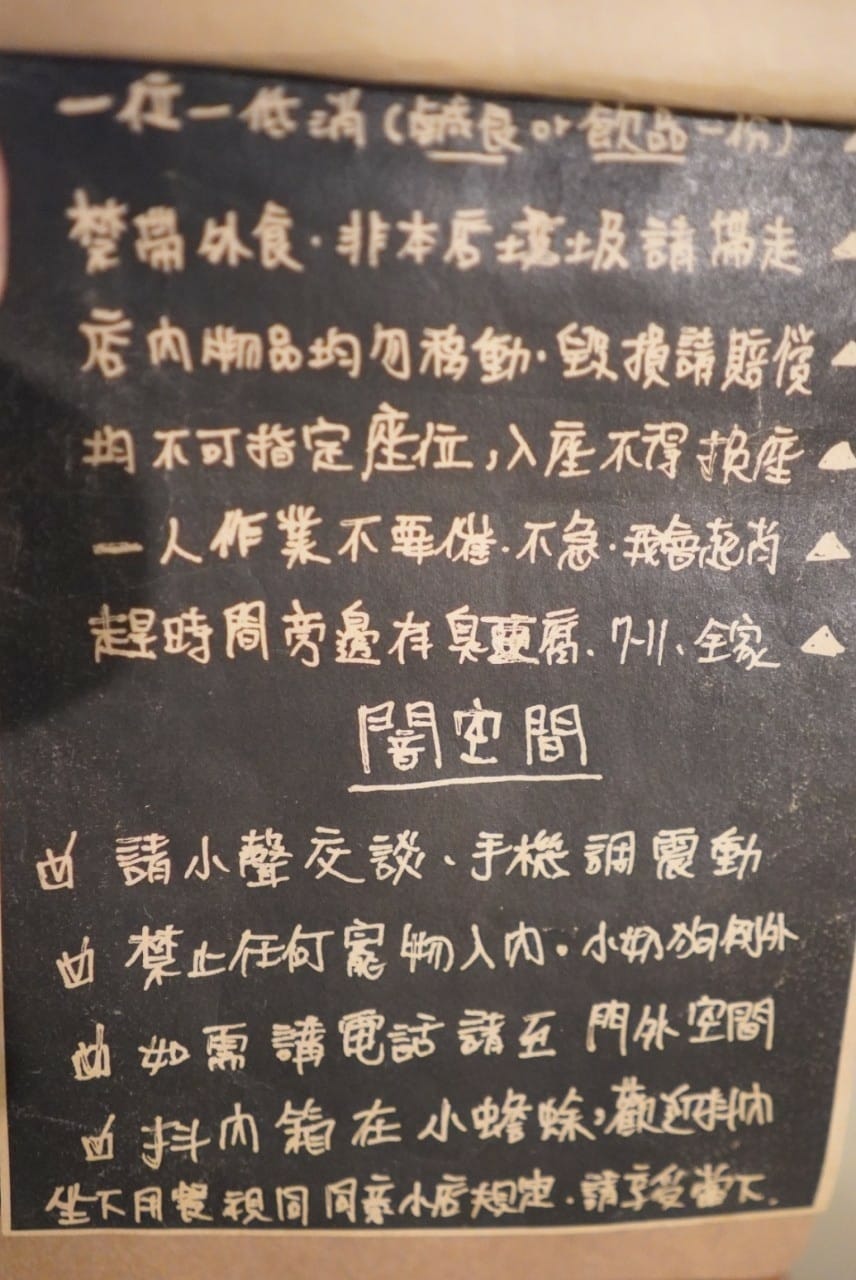 一位一低消(鹹食or飲品一份)
禁帶外食．非本店垃圾請帶走
店內物品均勿移動．毀損請賠償
均不可指定座位,入座不得換座
一人作業不要催．不急．我會起肖
趕時間旁邊有臭豆腐、7-11、全家
闇空間
請小聲交談、手機調震動
禁止任何寵物入內。小奶狗例外
如需講電話請至門外空間
抖內箱在小蟾蜍,歡迎抖內
坐下用餐視同同意小店規定．請享受當下．